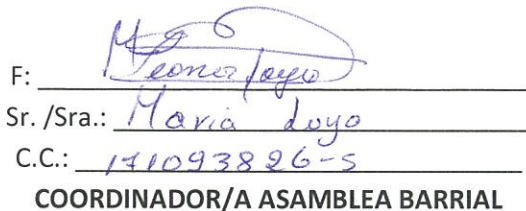 F: Leonor Loyo
Sr. /Sra.: Maria Loyo
C.C.: 171093826-5
COORDINADOR/A ASAMBLEA BARRIAL